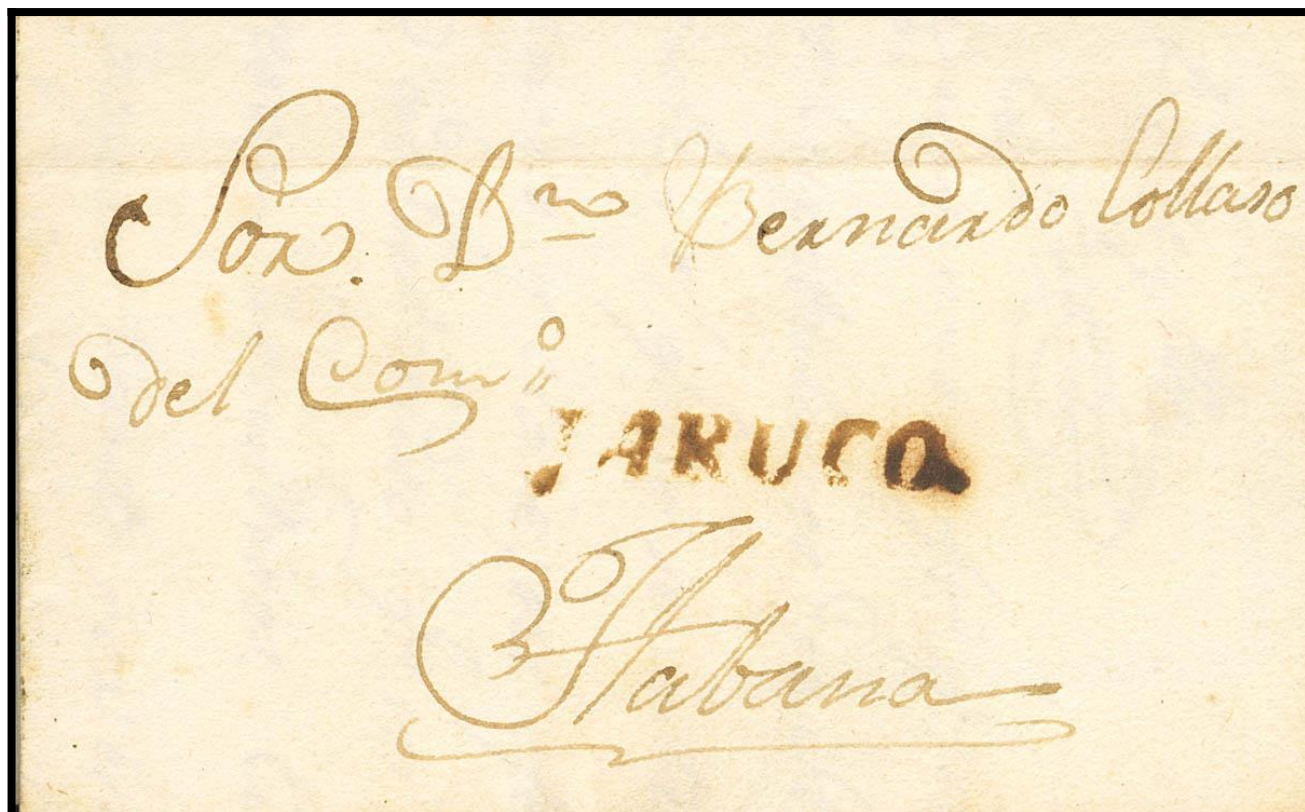 Sor. Dn Bernardo Collaso
del Como
JARUCO
Habana